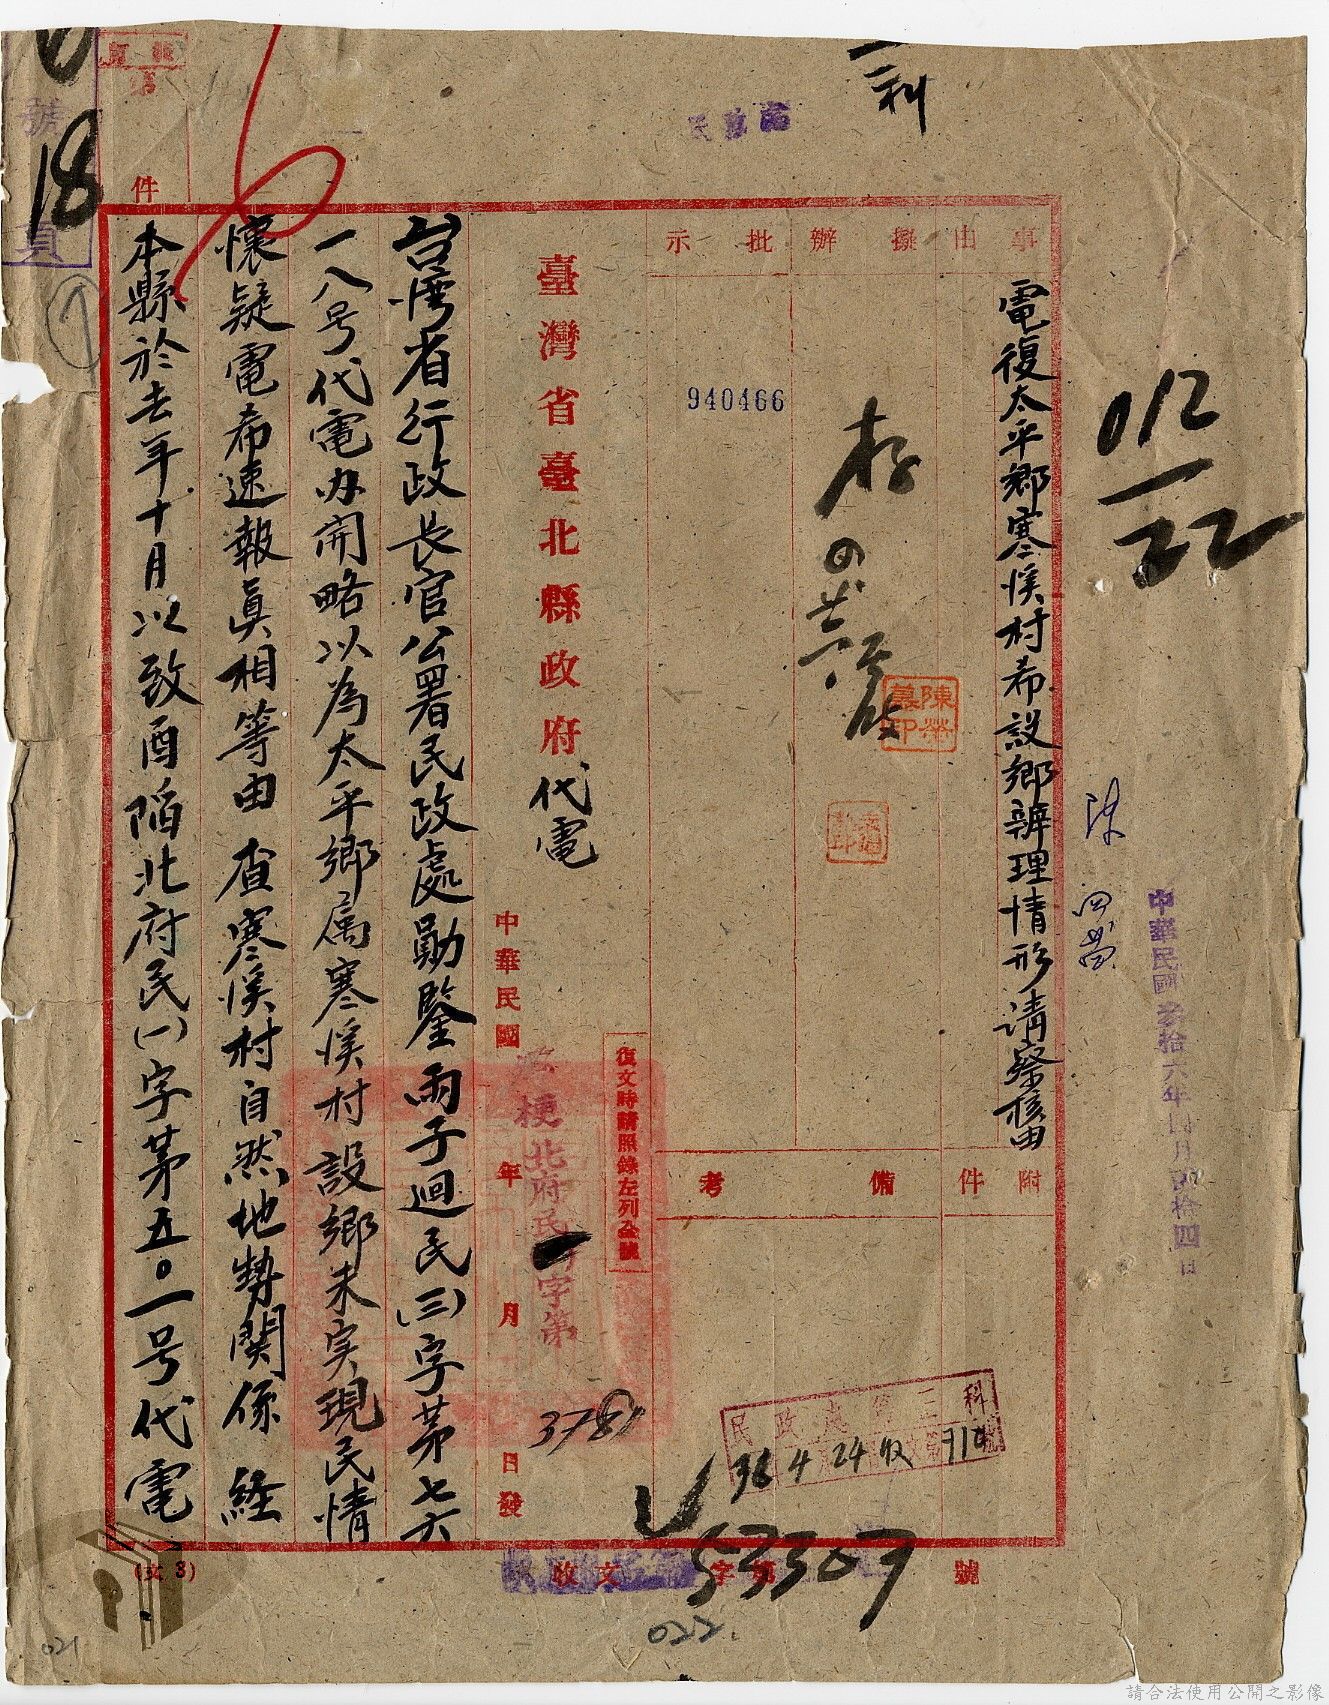 三科
012
22
中華民國叁拾六年 月 拾四日
事由
擬辦
批示
電復太平鄉寒溪村希設鄉辦理情形請察核由
940466
存
陳榮
附件
備考
復文時請照錄左列全號
臺灣省臺北縣政府代電
中華民國 年 月 日發
梗北府民 字第
3789
民政處第三科
36 4 24 收
台湾省行政长官公署民政處勛鑒兩子迴民(三)字苐七六
一八号代電办開略以為太平鄉属寒溪村設鄉未实現民情
懷疑電希速報眞相等由 查寒溪村自然地勢関係 経
本縣於去年十月以致酉陷北府民(一)字苐五〇一号代電
收文 字第 號
53389
(文3)
件
號
18
頁
021
022
請合法使用公開之影像